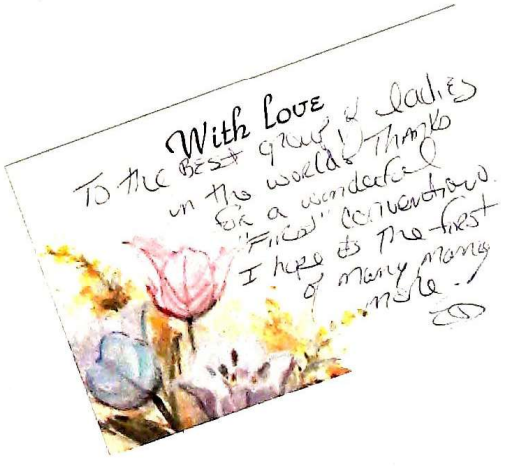 With Love
To the BEST group of ladies
in the world! Thanks
for a wonderful
"First" Convention.
I hope its the first
of many many
more.